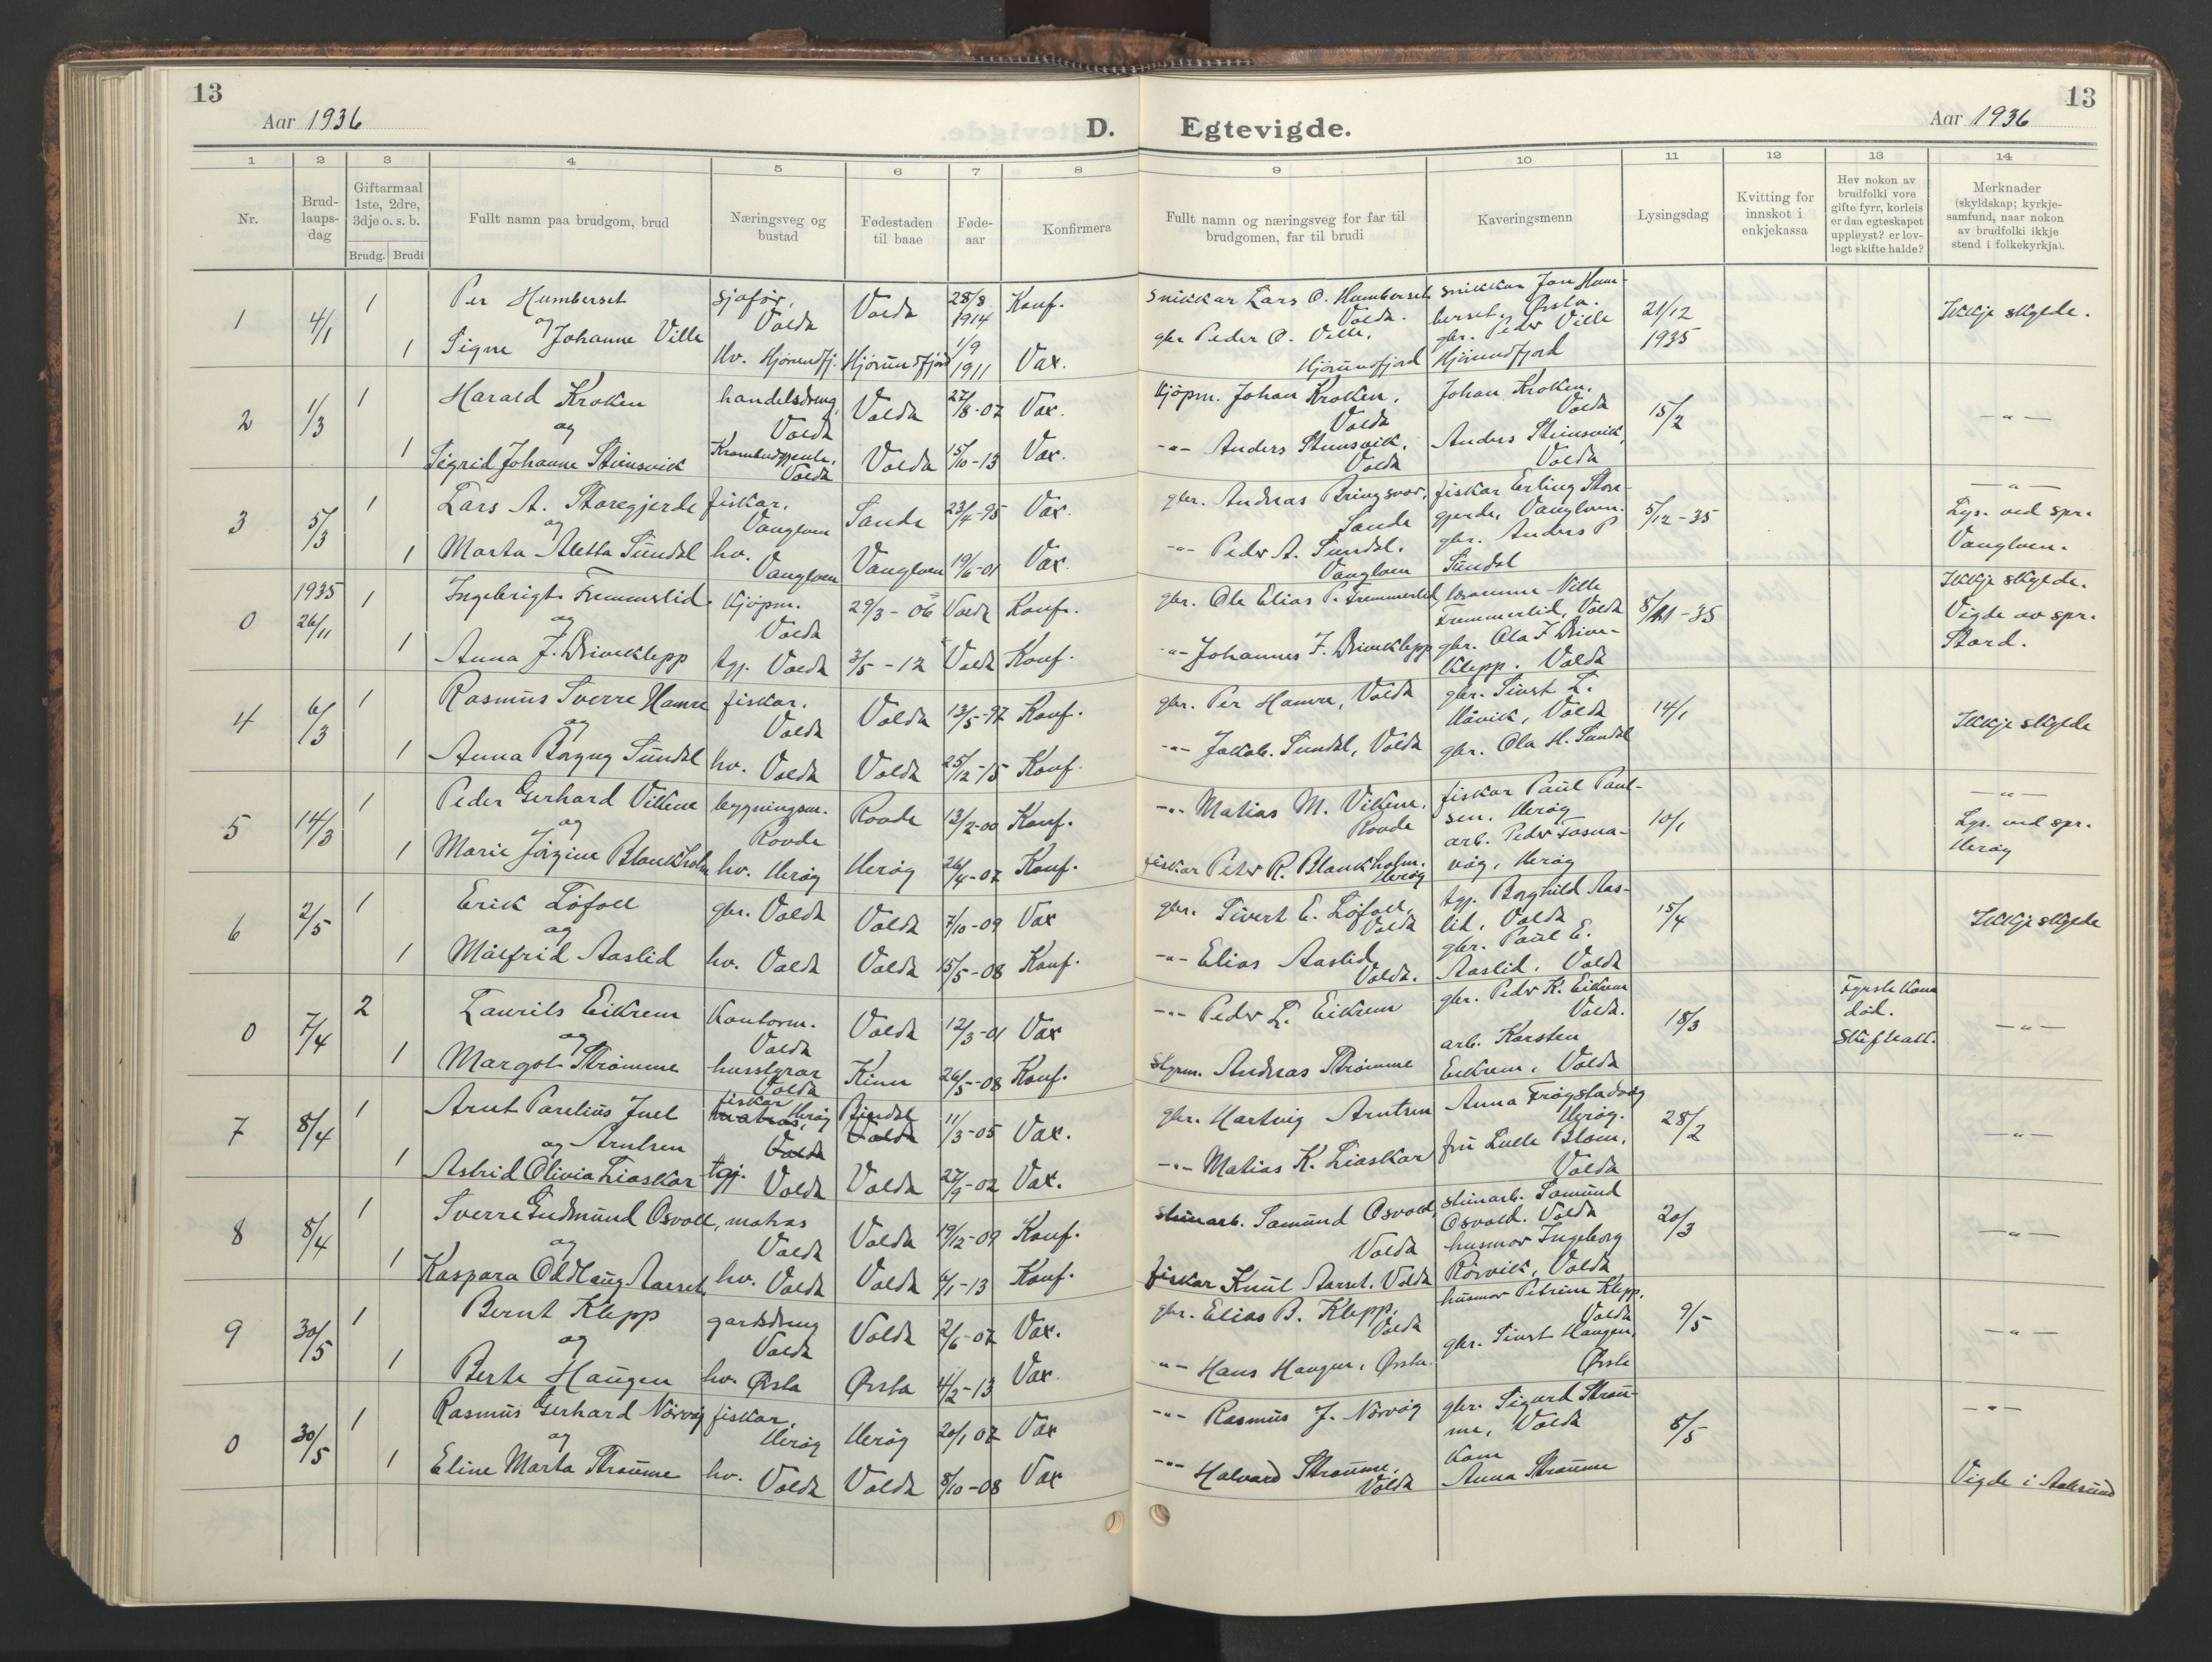 13
Aar 1936
D.
Egtevigde.
Aar 1936
13
1 2 3 4 5 6 7 8 9 10 11 12 13 14
Nr.
Brud-
laups-
dag
Giftarmaal
1ste, 2dre,
3dje o. s. b.
Brudg. Brudi
Fullt namn paa brudgom, brud
Næringsveg og
bustad
Fødestaden
til baae
Føde-
aar
Konfirmera
Fullt namn og næringsveg for far til
brudgomen, far til brudi
Kaveringsmenn
Lysingsdag
Kvitting for
innskot i
enkjekassa
Hev nokon av
brudfolki vore
gifte fyrr, korleis
er daa egteskapet
uppløyst? er lov-
legt skifte halde?
Merknader
(skyldskap; kyrkje-
samfund, naar nokon
av brudfolki ikkje
stend i folkekyrkja).
1 4/1 1 Per Humberset sjafør, Volda Volda 28/8 1914 Konf. snikkar Lars O. Humberset Volda. snikkar Jon Hum-
berset, Ørsta. 21/12 1935 Ikkje skylde.
og
1 Signe Johanne Ville hv. Hjørundfj. Hjørundfjord 1/9 1911 Vax. gbr Peder O. Ville, Hjørundfjord gbr. Peder Ville Hjørundfjord
2 1/3 1 Harald Kroken handelsdreng, Volda Volda 27/8-07 Vax. kjøpm. Johan Kroken, Volda Johan Kroken, Volda 15/2 -"-
og
1 Sigrid Johanne Steinsvik Volda Volda 15/10-13 Vax. -"- Anders Steinsvik, Volda Anders Steinsvik, Volda
3 5/3 1 Lars A. Storegjerde fiskar, Vanylven Sande 23/4-95 Vax. gbr. Andreas Bringsvor, Sande fiskar Erling Store-
gjerde, Vanylven. 5/12-35 -"-
Lys. ved spr.
Vanylven.
og
1 Marta Aletta Sundal hv. Vanylven Vanylven 19/6-01 Vax. -"- Peder A. Sundal. Vanylven gbr. Anders P Sundal
0 1935 26/11 1 Ingebrigt Fremmerlid kjøpm. Volda 29/3-06 Volda Konf. gbr. Ole Elias P. Fremmerlid, Ville
Fremmerlid, Volda 8/11-35 Ikkje skylde.
Vigde av spr.
Stord.
og
1 Anna J. Driveklepp tgj. Volda 3/5-12 Volda Konf. -"- Johannes F. Driveklepp gbr. Ola F Drive-
klepp. Volda
4 6/3 1 Rasmus Sverre Hamre fiskar. Volda Volda 13/5-97 Konf. gbr. Per Hamre, Volda gbr. Sivert L.
Håvik, Volda 14/1 Ikkje skylde
og
1 Anna Borgny Sundal hv. Volda Volda 25/12-15 Konf. -"- Jakob. Sundal, Volda gbr. Ola H. Sundal
5 14/3 1 Peder Gerhard Vikene bygningsm. Rovde Rovde 13/2-00 Konf. -"- Matias M. Vikene, Rovde fiskar Paul Paul-
sen. Herøy 10/1 -"-
Lys. ved spr.
Herøy
og
1 Marie Jørgine Blankholm hv. Herøy Herøy 26/4-07 Konf. fiskar Peter R. Blankholm. Herøy arb. Peder Fosna-
våg, Herøy
6 2/5 1 Erik Løfoll gbr. Volda Volda 7/10-09 Vax gbr. Sivert E. Løfoll, Volda tgj. Borghild Aas-
lid, Volda 15/4 Ikkje skylde
og
1 Målfrid Aaslid hv. Volda Volda 15/5-08 Konf. -"- Elias Aaslid, Volda. gbr. Paul E.
Aaslid. Volda
0 7/4 2 Laurits Eikrem kontorm. Volda Volda 12/3-01 Vax -"- Peder L. Eikrem gbr. Peder K. Eikrem
Volda. 18/3 Fyrste kona
død. -"-
og
1 Margot Strømme husstyrar Volda Kinn 26/5-08 Konf. styrm. Andreas Strømme arb. Karsten
Eikrem, Volda
7 8/4 1 Arnt Parelius Juel fiskar Herøy matros, Volda Bindal Volda 11/3-05 Vax. gbr. Hartvig Arntsen Anna Frøystadvåg
Herøy. 28/2 -"-
og Arntsen
1 Astrid Olivia Liaskar tgj. Volda Volda 27/9-02 Vax. -"- Matias K. Liaskar fru Lulle Blom,
Volda
8 8/4 1 Sverre Gudmund Osvoll, matros Volda Volda 19/12-09 Konf. steinarb. Samund Osvold, Volda steinarb. Samund
Osvold. Volda 20/3 -"-
og
1 Kaspara Oddlaug Aarset, hv. Volda Volda 6/1-13 Konf. fiskar Knut Aarset. Volda husmor Ingeborg
Rørvik, Volda
9 30/5 1 Bernt Klepp gardsdreng Volda Volda 2/6-07 Vax. gbr. Elias B. Klepp, Volda husmor Petrine Klepp.
Volda 9/5 -"-
og
1 Berte Haugen hv. Ørsta Ørsta 4/2-13 Vax. -"- Hans Haugen, Ørsta. gbr. Sivert Haugen,
Ørsta
0 30/5 1 Rasmus Gerhard Nørvåg fiskar, Herøy Herøy 20/1 07 Vax -"- Rasmus J. Nørvåg gbr. Sigurd Strau-
me, Volda 8/5 -"-
og
1 Eline Marta Straume hv. Volda Volda 8/10-08 Vax -"- Halvard Straume, Volda Kone
Anna Straume Vigde i Aalesund